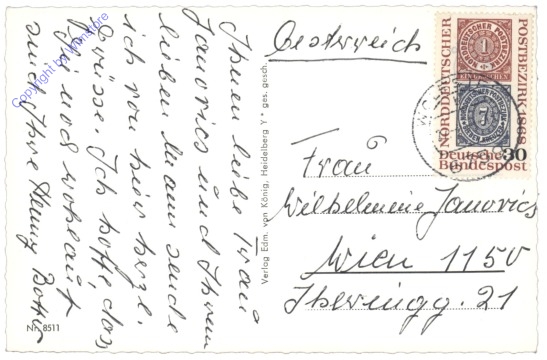 Ihnen liebe Frau
Janovics und Ihrem
lieben Mann sende
ich von hier herzl.
Grüsse. Ich hoffe das
Sie noch wohlauf
sind. Ihre Henny
Nr. 8511
Copyright by
Verlag Edm. von König, Heidelberg Y* ges. gesch.
Oesterreich
NORDDEUTSCHER POSTBEZIRK 1868
1
30
Deutsche
Bundespost
Frau
Wilhelmine Janovics
Wien 1150
21